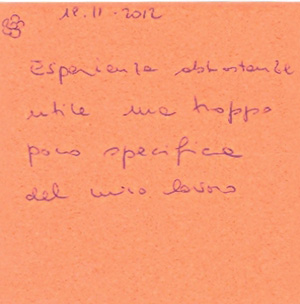 12.11.2012
Esperienza abbastanza
utile ma troppo
poco specifica
del mio lavoro